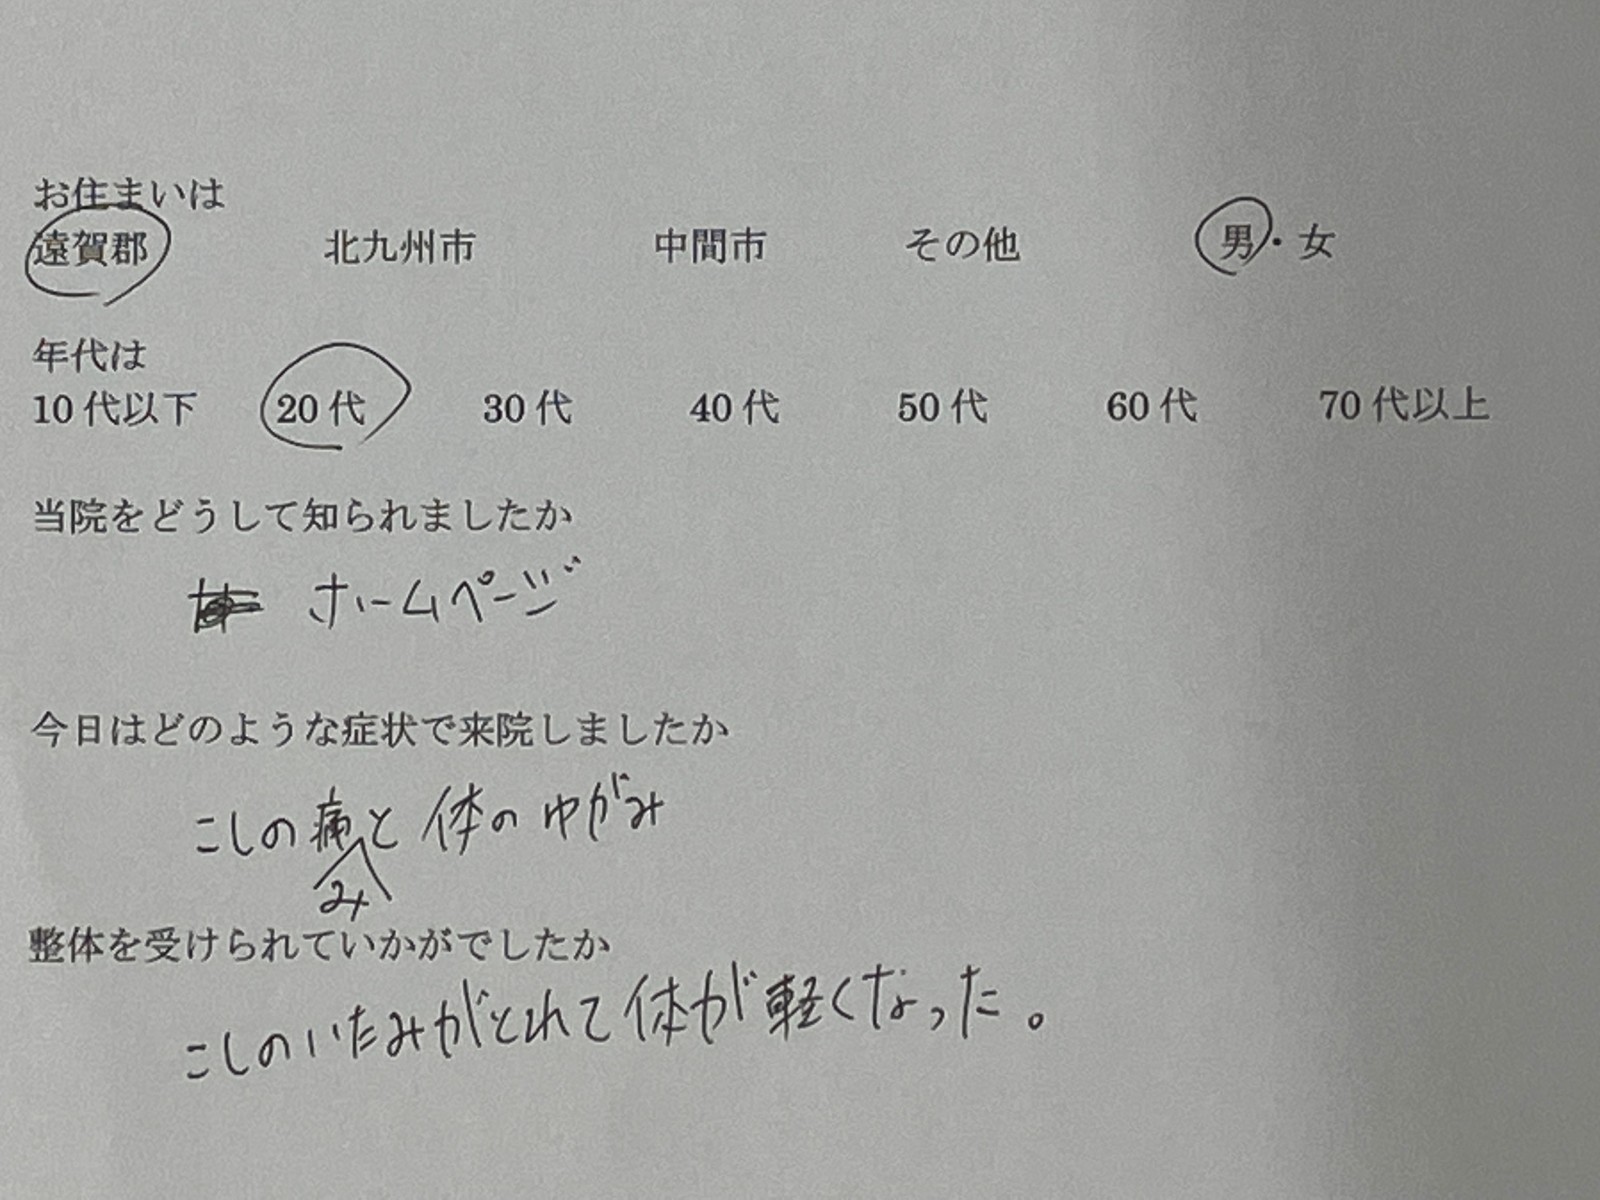 お住まいは
遠賀郡 北九州市 中間市 その他 男・女
年代は
10代以下 20代 30代 40代 50代 60代 70代以上
当院をどうして知られましたか
ホームページ
今日はどのような症状で来院しましたか
こしの痛みと体のゆがみ
整体を受けられていかがでしたか
こしのいたみがとれて体が軽くなった。